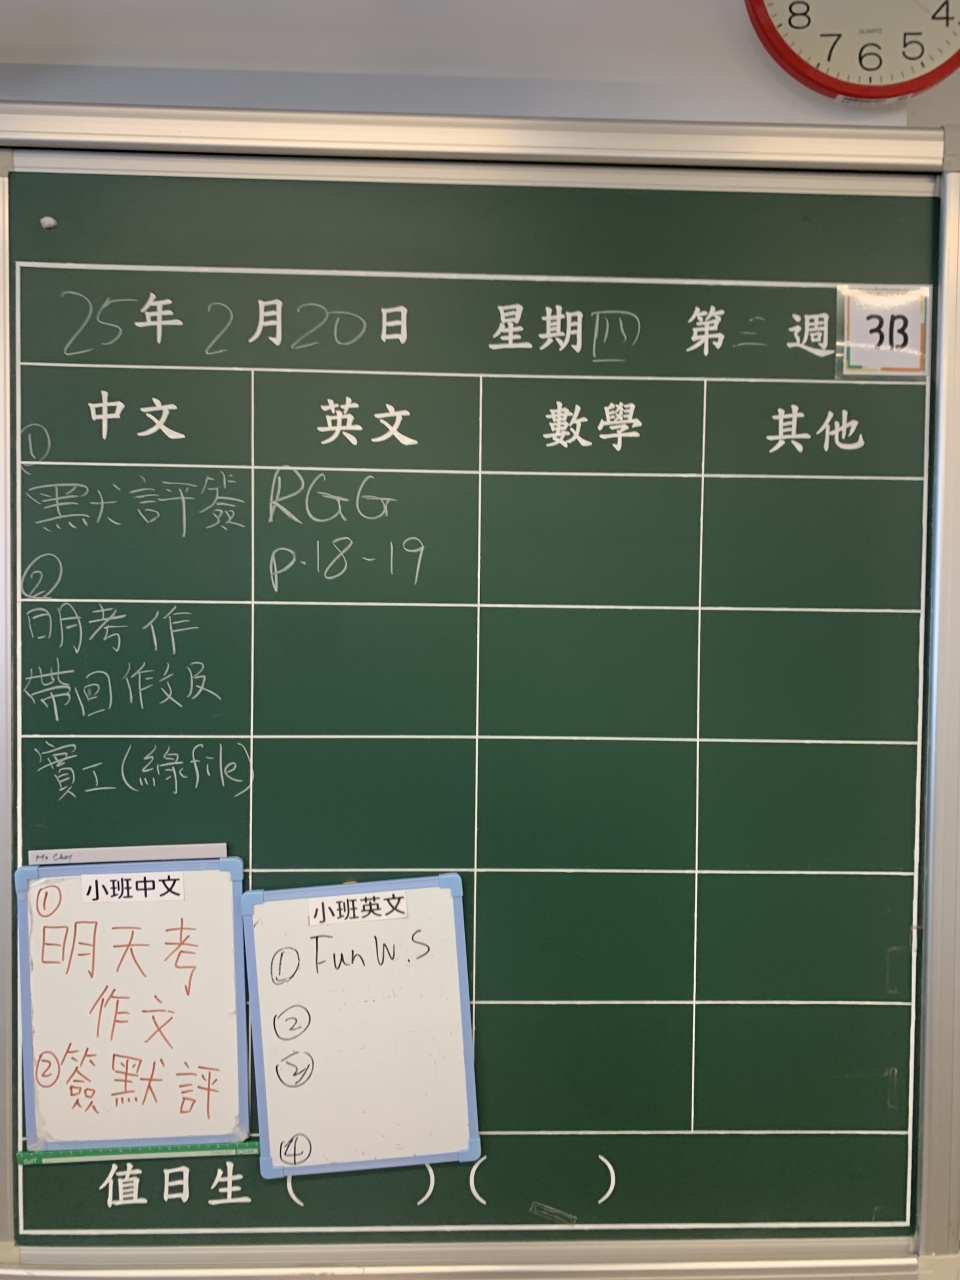 8 7 6 5 4
QUARTZ
25年2月20日 星期四 第三週 3B
中文 英文 數學 其他
①
默評簽
②
明考作
帶回作文及
實工(綠file)
RGG
p.18-19
Ms Choy
小班中文
①
明天考
作文
②簽默評
小班英文
① Fun W.S
②
③
④
值日生 ( ) ( )